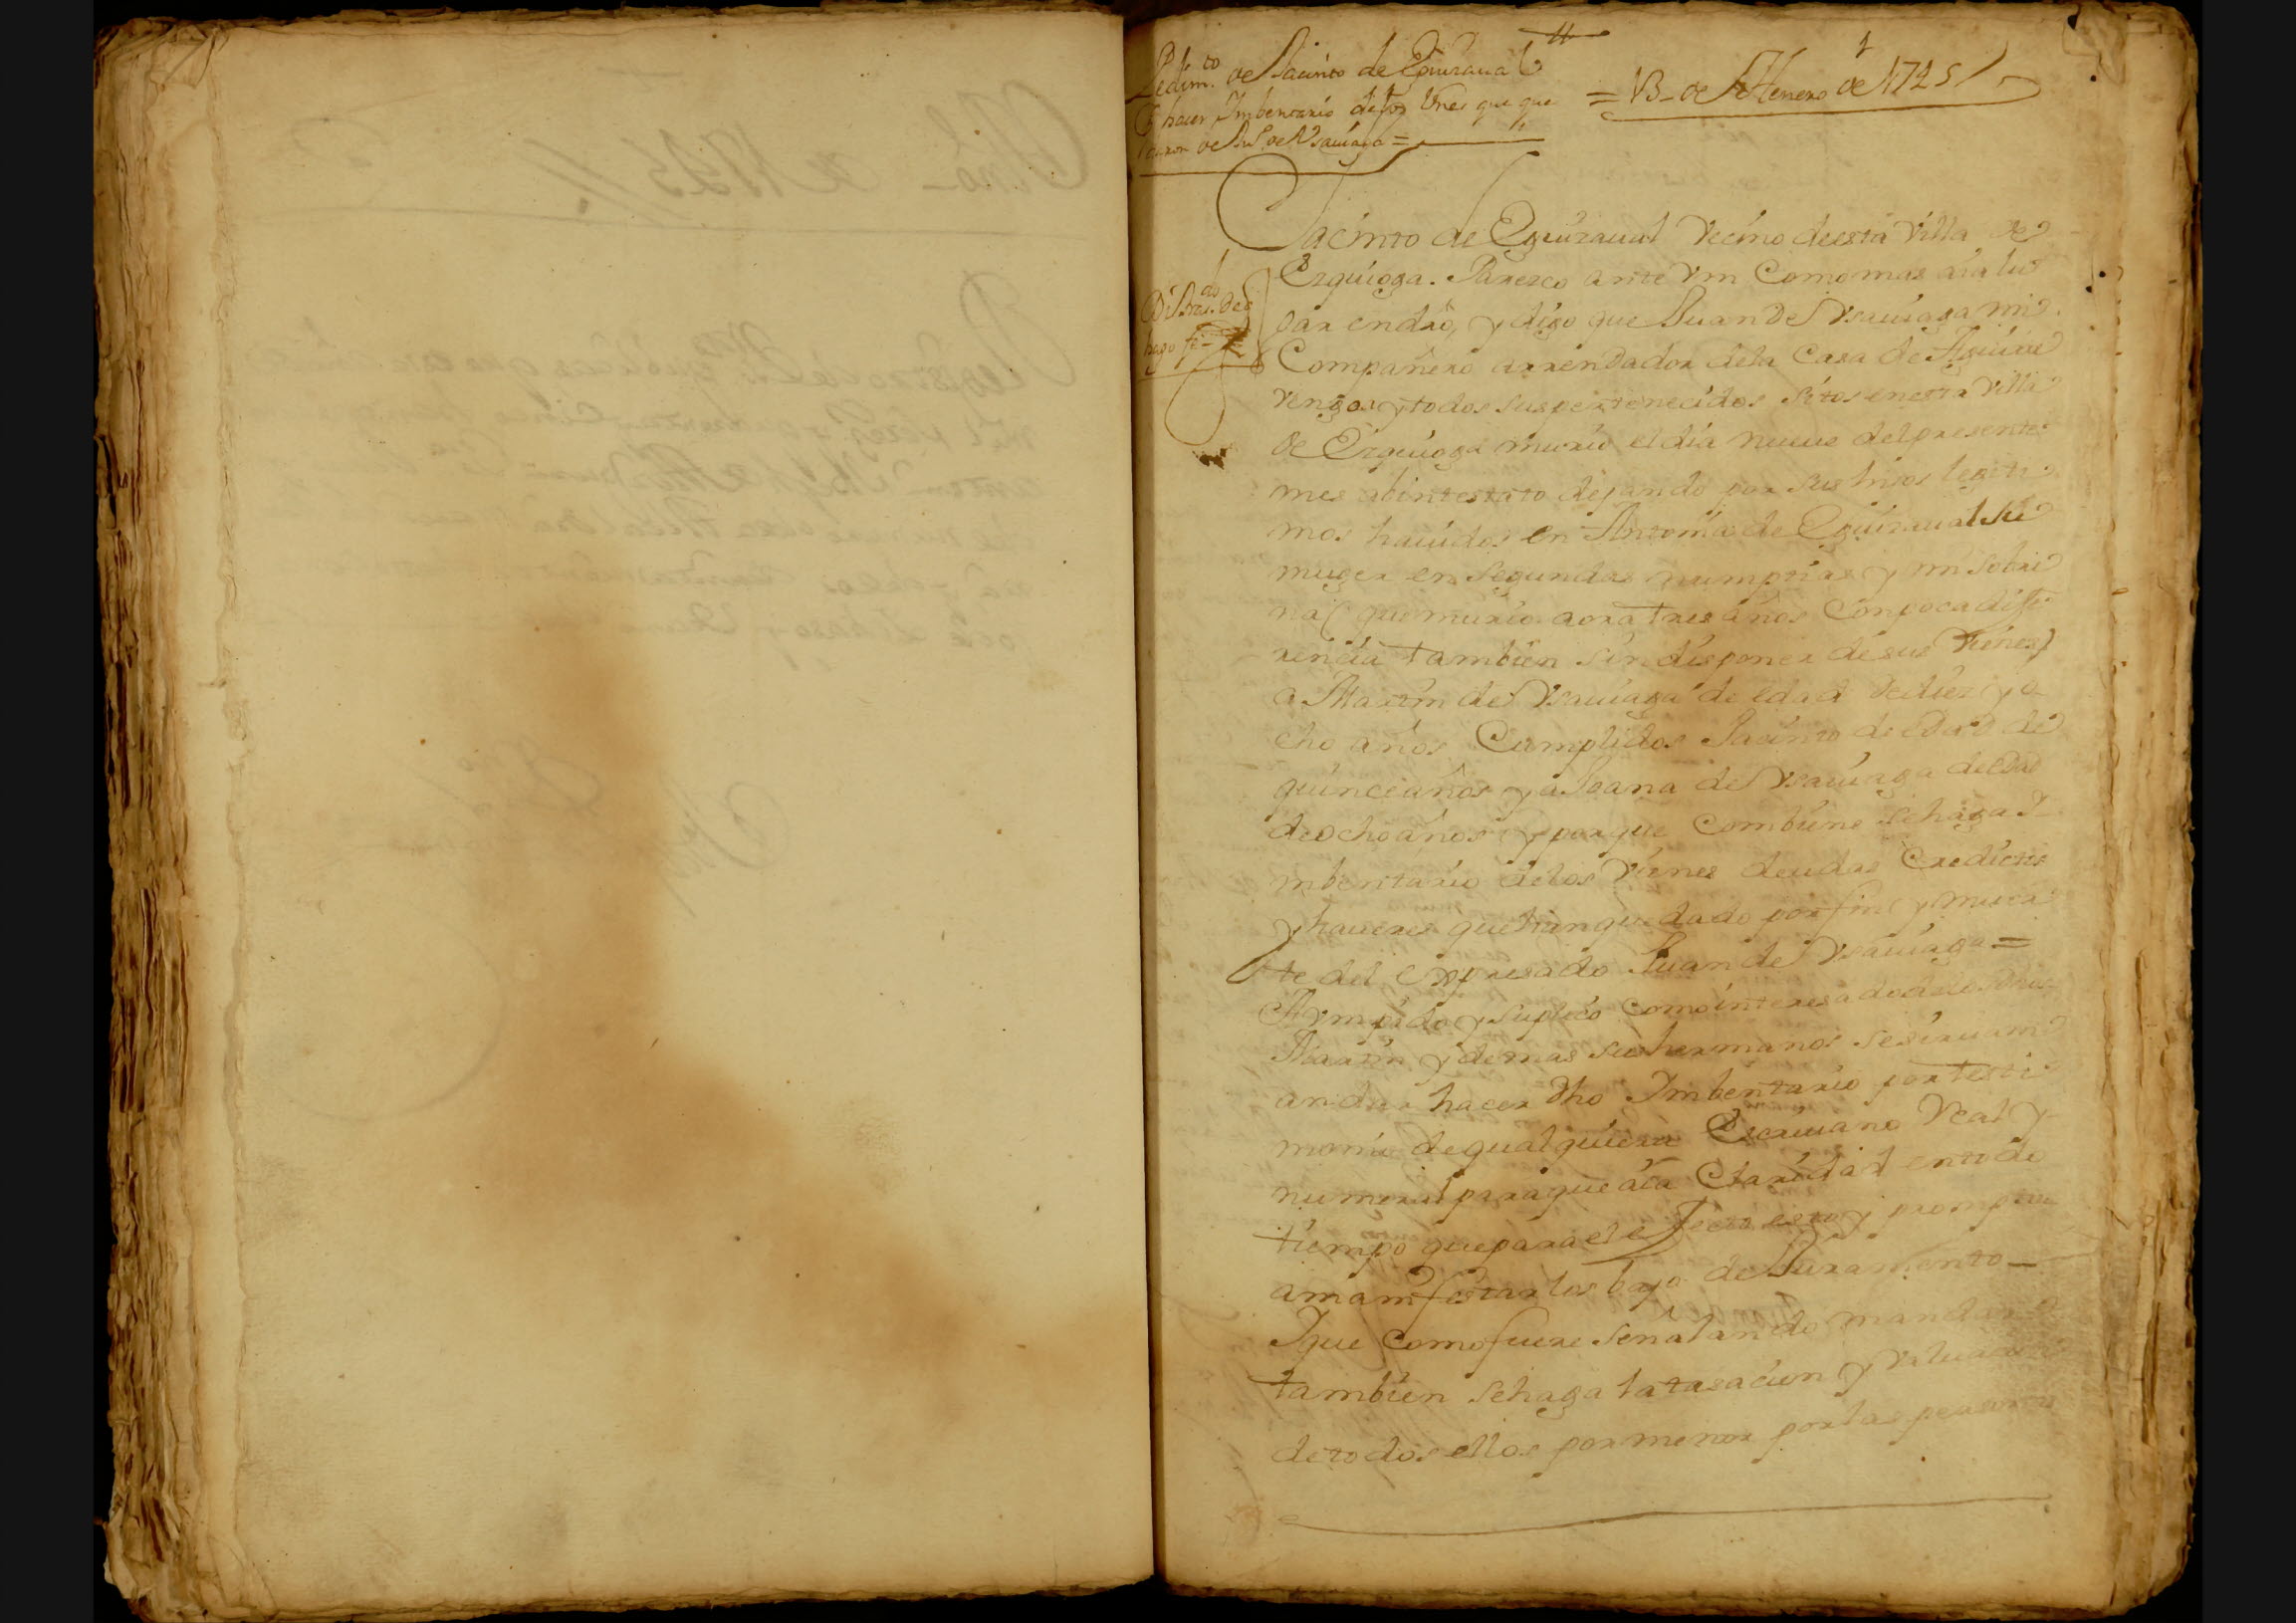 Pedim.to de Jacinto de Eguzaual
hacer Imbentario de los Vnes que que
daron de Ju.o de Vsauiaga =
= 13 de Henero de 1725
Jacinto de Eguizaual Vecino de esta Villa de
Ezquioga. Parezco ante Vm Como mas aia lu
gar en dró, y digo que Juan de Vsauiaga mi
Compañero arrendador dela Casa de Aguirre
y todos sus pertenecidos sitos en esta Villa
de Ezquioga murio el dia nueue del presente
mes abintestato dejando por sus hijos legiti
mos hauidos en Antonia de Eguizaual su
muger en segundas numptias y mi sobri
na (que murio aora tres años Con poca diffe
rencia tambien sin disponer de sus Vienes)
a Martin de Vsauiaga de edad de diez y o
cho años Cumplidos Jacinto de edad de
quince años y a Joana de Vsauiaga de edad
de ocho años y porque Combiene se haga I
mbentario delos Vienes deudas Creditos
y haueres que han quedado por fin y muer
te del expresado Juan de Vsauiaga =
A Vm pido y suplico como interesado
Martin y demas sus hermanos se sirua m
andar hacer dho Imbentario por testi
monio de qualquiera Escriuano Real y
numeral para que aia Claridad en todo
tiempo que para el efecto estoy prompto
a manifestarlos bajo de Juramento
I que como fuere señalando mandar
tambien se haga la tasacion y Valuacion
de todos ellos por menor por las personas